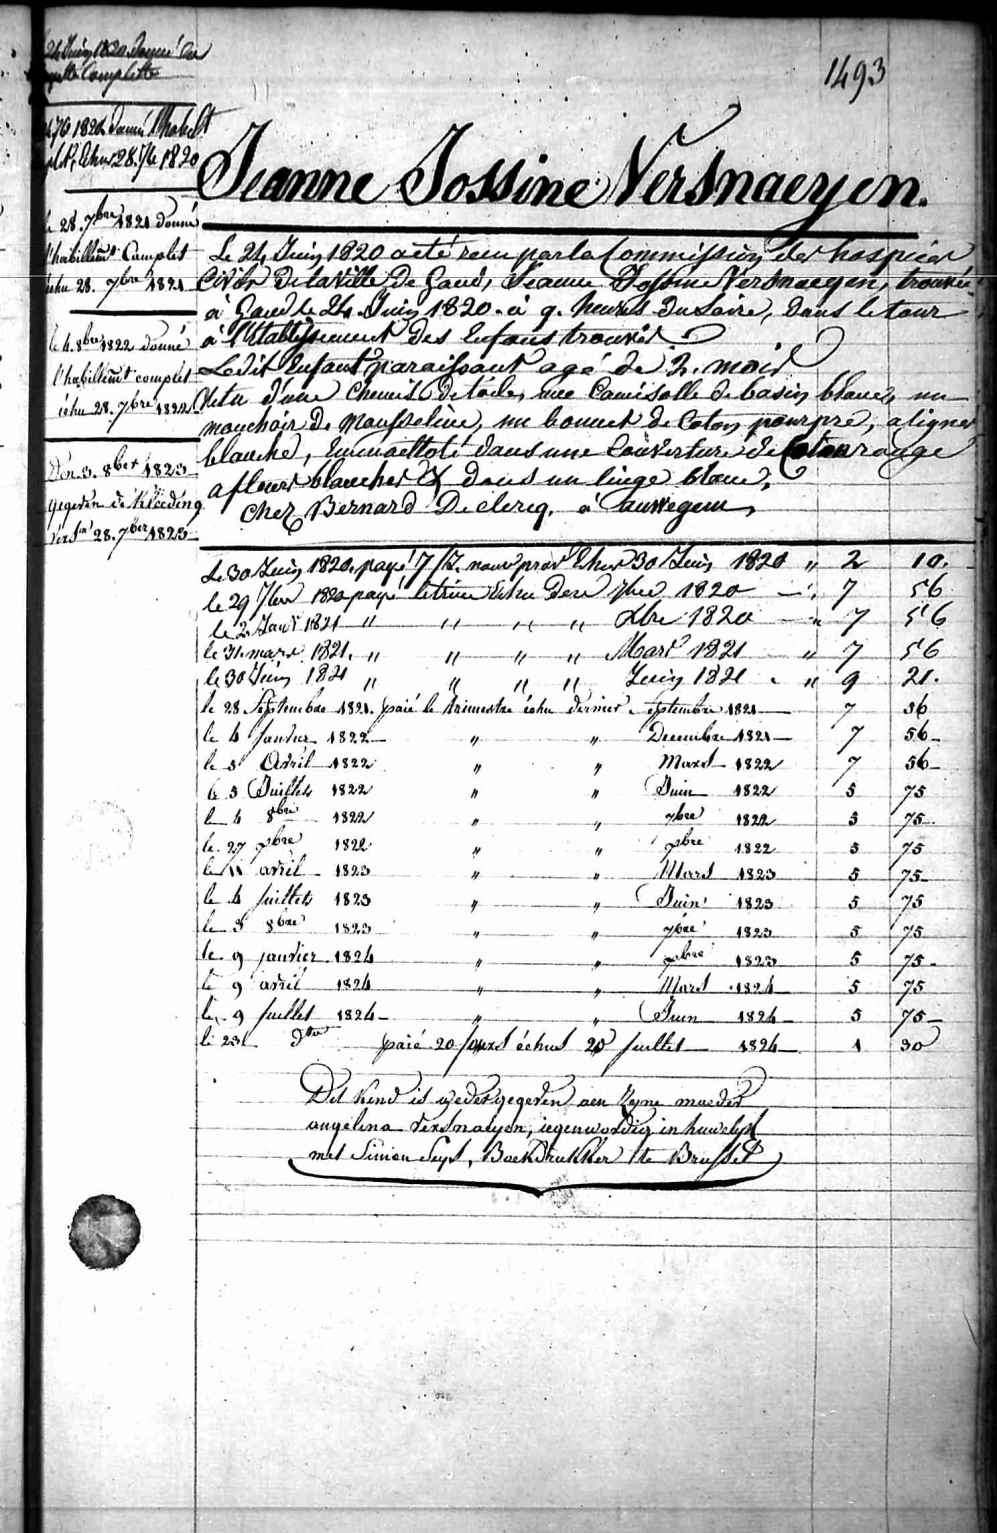 1493
24 Juin 1820 Donné la
Complette
1820 donné l'habilt
Echu 28. 7bre 1820
le 28. 7bre 1821 donné
l'habillemt Complet
échu 28. 7bre 1821
le 4. 8bre 1822 donné
l'habillemt complet
échu 28. 7bre 1822
den 3. 8ber 1823
gegeven de kleeding
28. 7ber 1823
Jeanne Jossine Versnaeyen.
Le 24 Juin 1820 a été reçu par la Commission des hospices
Civils de la Ville de Gand, Jeanne Jossine Versnaeyen, trouvée
à Gand le 24 Juin 1820. à 9. heures du Soire, dans le tour
à l'Etablissement des Enfans trouvés.
Ledit Enfant paraissant agé de 2. mois
Vetu d'une Chemise de toile, une Camisolle de basin blance, un
mouchoir de Mousseline, un bonnet de Coton pourpre, a lignes
blanche, Emmaillotté dans une Couverture de Coton rouge
a fleurs blanches & dans un linge blanc,
Chez Bernard Declercq, à Auwegem
Le 30 Juin 1820. payé 7/J. nour: prov Echus 30 Juin 1820 " 2 10.
le 29 7bre 1820 payé letrim Echu dere 7bre 1820 — " 7 56
le 2 Janv 1821 " " " " Xbre 1820 — " 7 56
le 31. mars 1821. " " " " Mars 1821 " 7 56
le 30 Juin 1821 " " " " Juin 1821 " 9 21.
le 28 Septembre 1821. paié le trimestre échu dernier Septembre 1821 — 7 56
le 4 Janvier 1822 — " " Decembre 1821 — 7 56 —
le 5 Avril 1822 " " Mars 1822 7 56 —
le 5 Juillet 1822 " " Juin 1822 5 75
le 4 8bre 1822 " " 7bre 1822 5 75.
le 27 Xbre 1822 " " Xbre 1822 5 75
le 11 avril 1823 " " Mars 1823 5 75 —
le 4 Juillet 1823 " " Juin 1823 5 75
le 3 8bre 1823 " " 7bre 1823 5 75
le 9 janvier 1824 " " Xbre 1823 5 75 —
le 9 avril 1824 " " Mars 1824 — 5 75
le 9 Juillet 1824 — " " Juin 1824 — 5 75 —
le 23 dto paié 20 jours échus 20 Juillet 1824 — 1 30
Dit kind is wedergegeven aen zyne moeder
angelina Versnaeyen, tegenwordig in huwelyk
met Simon Seys, Boekdrukker tte Brussel